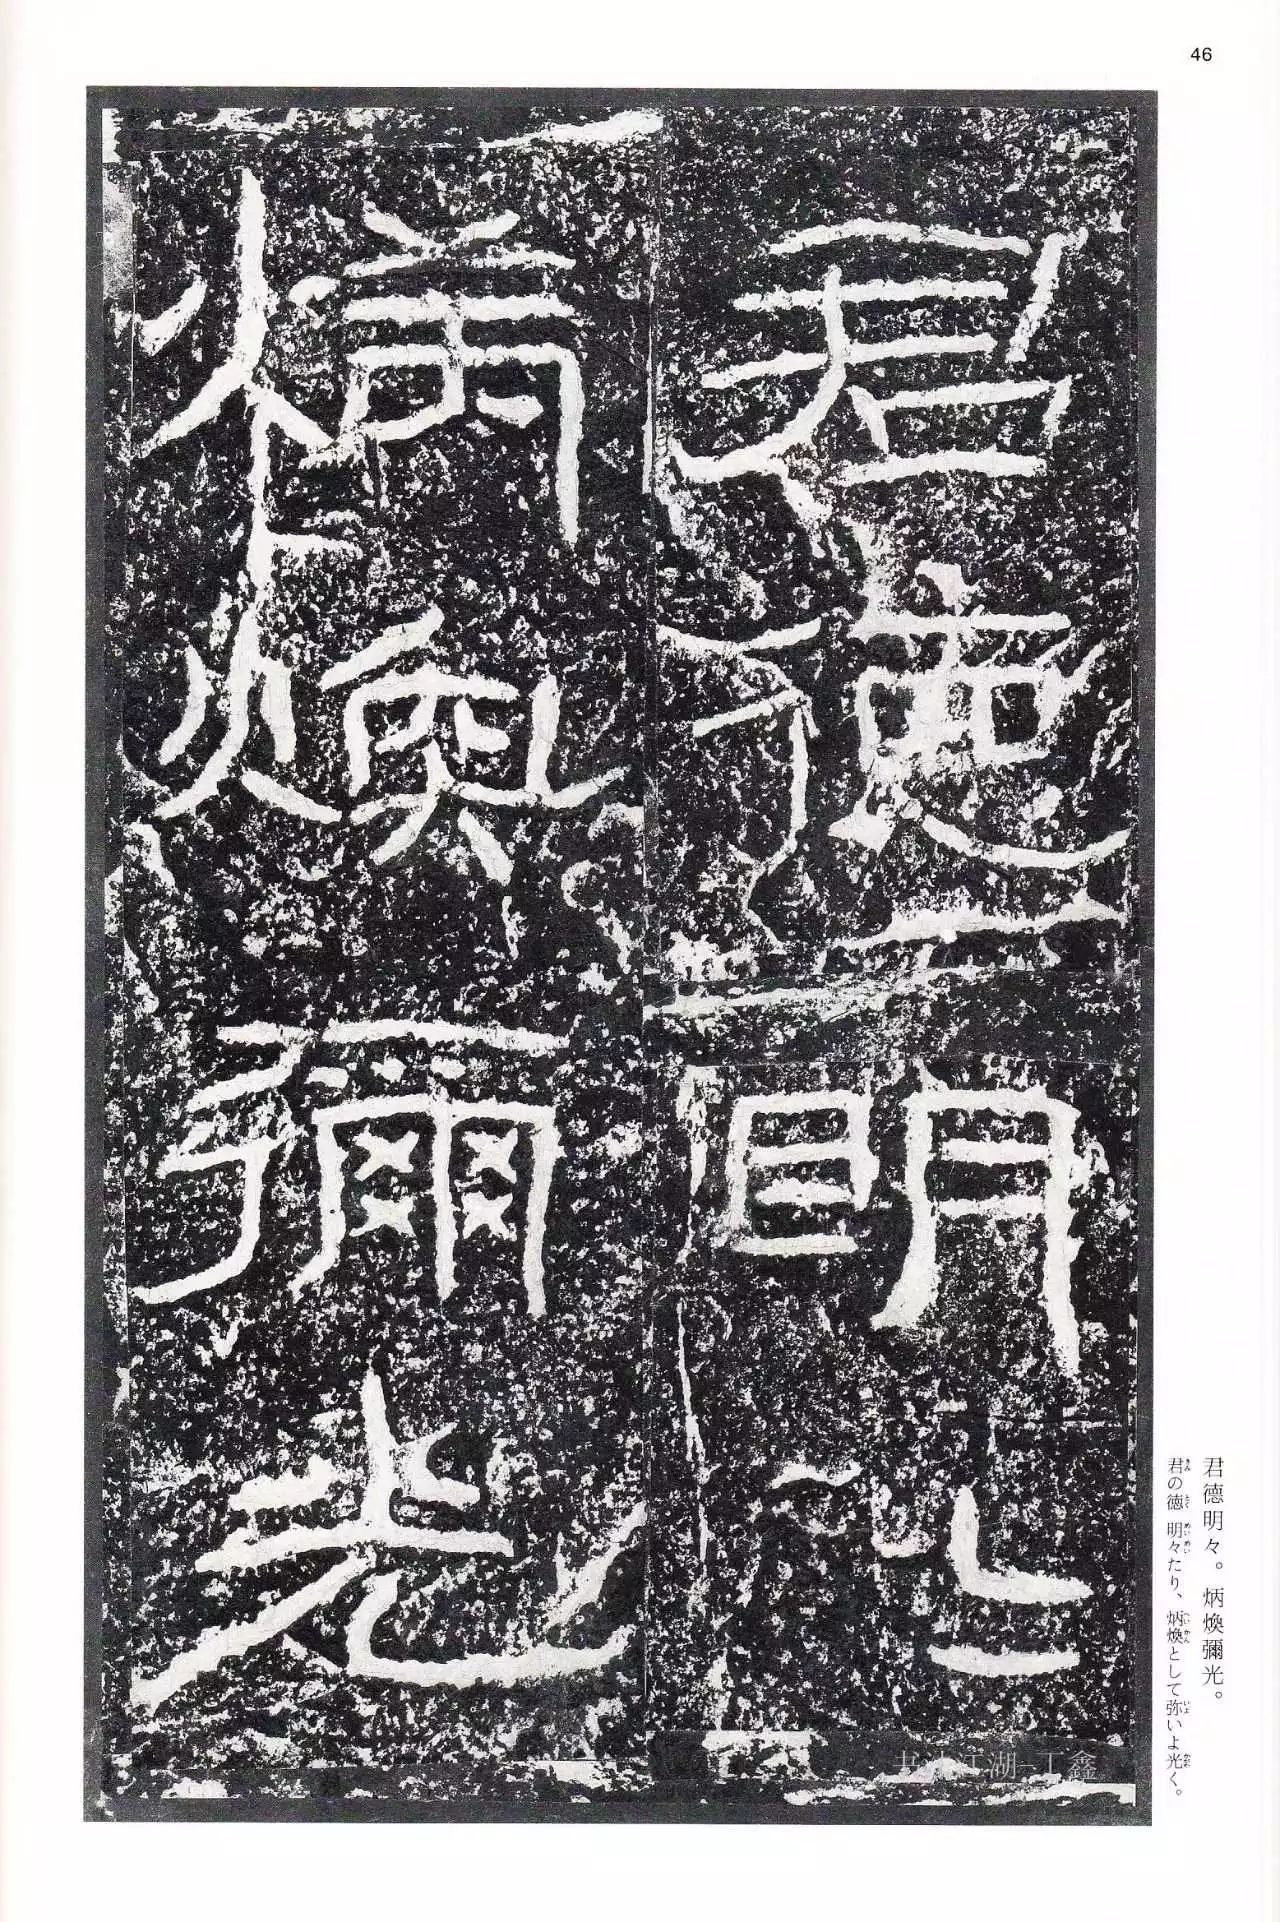 46
君德明〻
炳煥彌光
君德明々。炳煥彌光。
君の徳 明々たり、炳煥として弥いよ光く。
书法江湖-工鑫